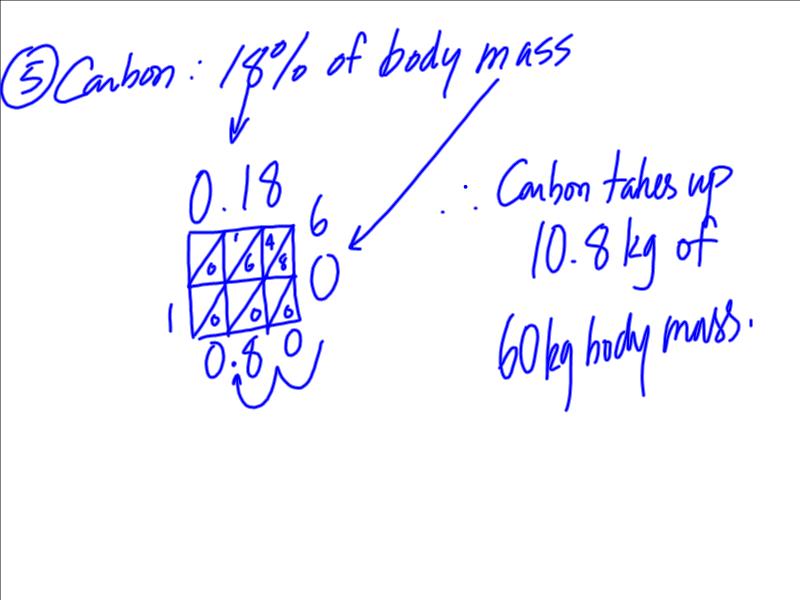 ⑤ Carbon: 18% of body mass
0.18
6
0
1 4
0 6 8
0 0 0
1
0.8 0
∴ Carbon takes up
10.8 kg of
60kg body mass.